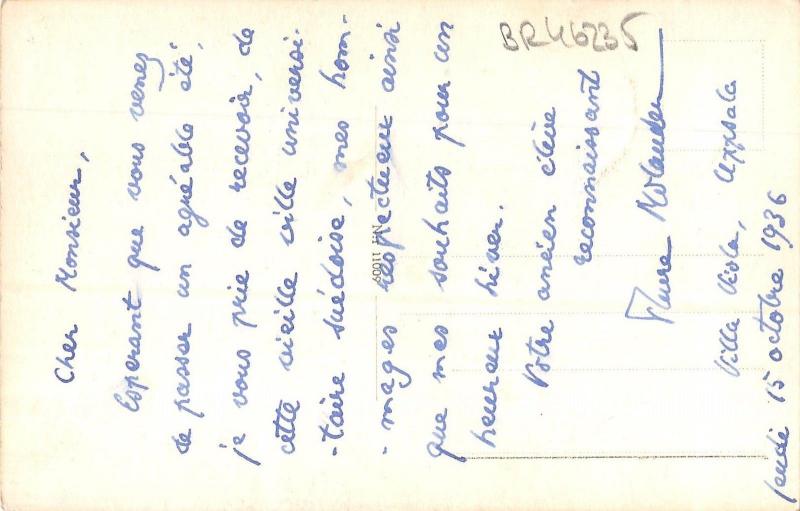 Cher Monsieur,
Esperant que vous venez
de passer un agréable été,
je vous prie de recevoir, de
cette vieille ville universi-
-taire suédoise, mes hom-
-mages respectueux ainsi
que mes souhaits pour un
heureux hiver.
Votre ancien élève
reconnaissant
Molander
Villa Viola, Uppsala
jeudi 15 octobre 1936
BR46235
NH 11009